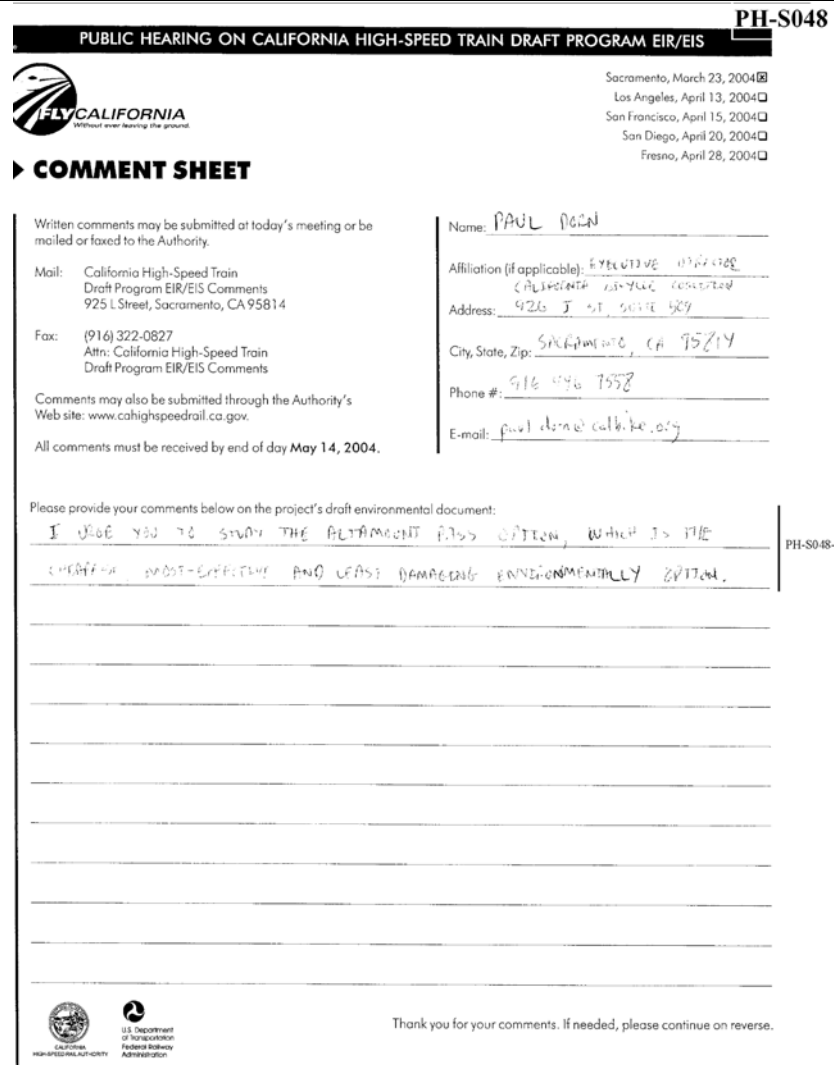 PH-S048
PUBLIC HEARING ON CALIFORNIA HIGH-SPEED TRAIN DRAFT PROGRAM EIR/EIS
Sacramento, March 23, 2004☒
Los Angeles, April 13, 2004☐
San Francisco, April 15, 2004☐
San Diego, April 20, 2004☐
Fresno, April 28, 2004☐
FLYCALIFORNIA
Without ever leaving the ground.
COMMENT SHEET
Written comments may be submitted at today's meeting or be
mailed or faxed to the Authority.
Mail: California High-Speed Train
Draft Program EIR/EIS Comments
925 L Street, Sacramento, CA 95814
Fax: (916) 322-0827
Attn: California High-Speed Train
Draft Program EIR/EIS Comments
Comments may also be submitted through the Authority's
Web site: www.cahighspeedrail.ca.gov.
All comments must be received by end of day May 14, 2004.
Name: PAUL DORN
Affiliation (if applicable): EXECUTIVE DIRECTOR
CALIFORNIA BICYCLE COALITION
Address: 926 J ST, SUITE
City, State, Zip: SACRAMENTO, CA 95814
Phone #: 916 446 7558
E-mail: paul dorn@calbike.org
Please provide your comments below on the project's draft environmental document:
I URGE YOU TO STUDY THE ALTAMOUNT PASS OPTION, WHICH IS THE
CHEAPER, MOST-EFFECTIVE AND LEAST DAMAGING ENVIRONMENTALLY OPTION.
PH-S048-
CALIFORNIA
HIGH-SPEED RAIL AUTHORITY
U.S. Department
of Transportation
Federal Railway
Administration
Thank you for your comments. If needed, please continue on reverse.